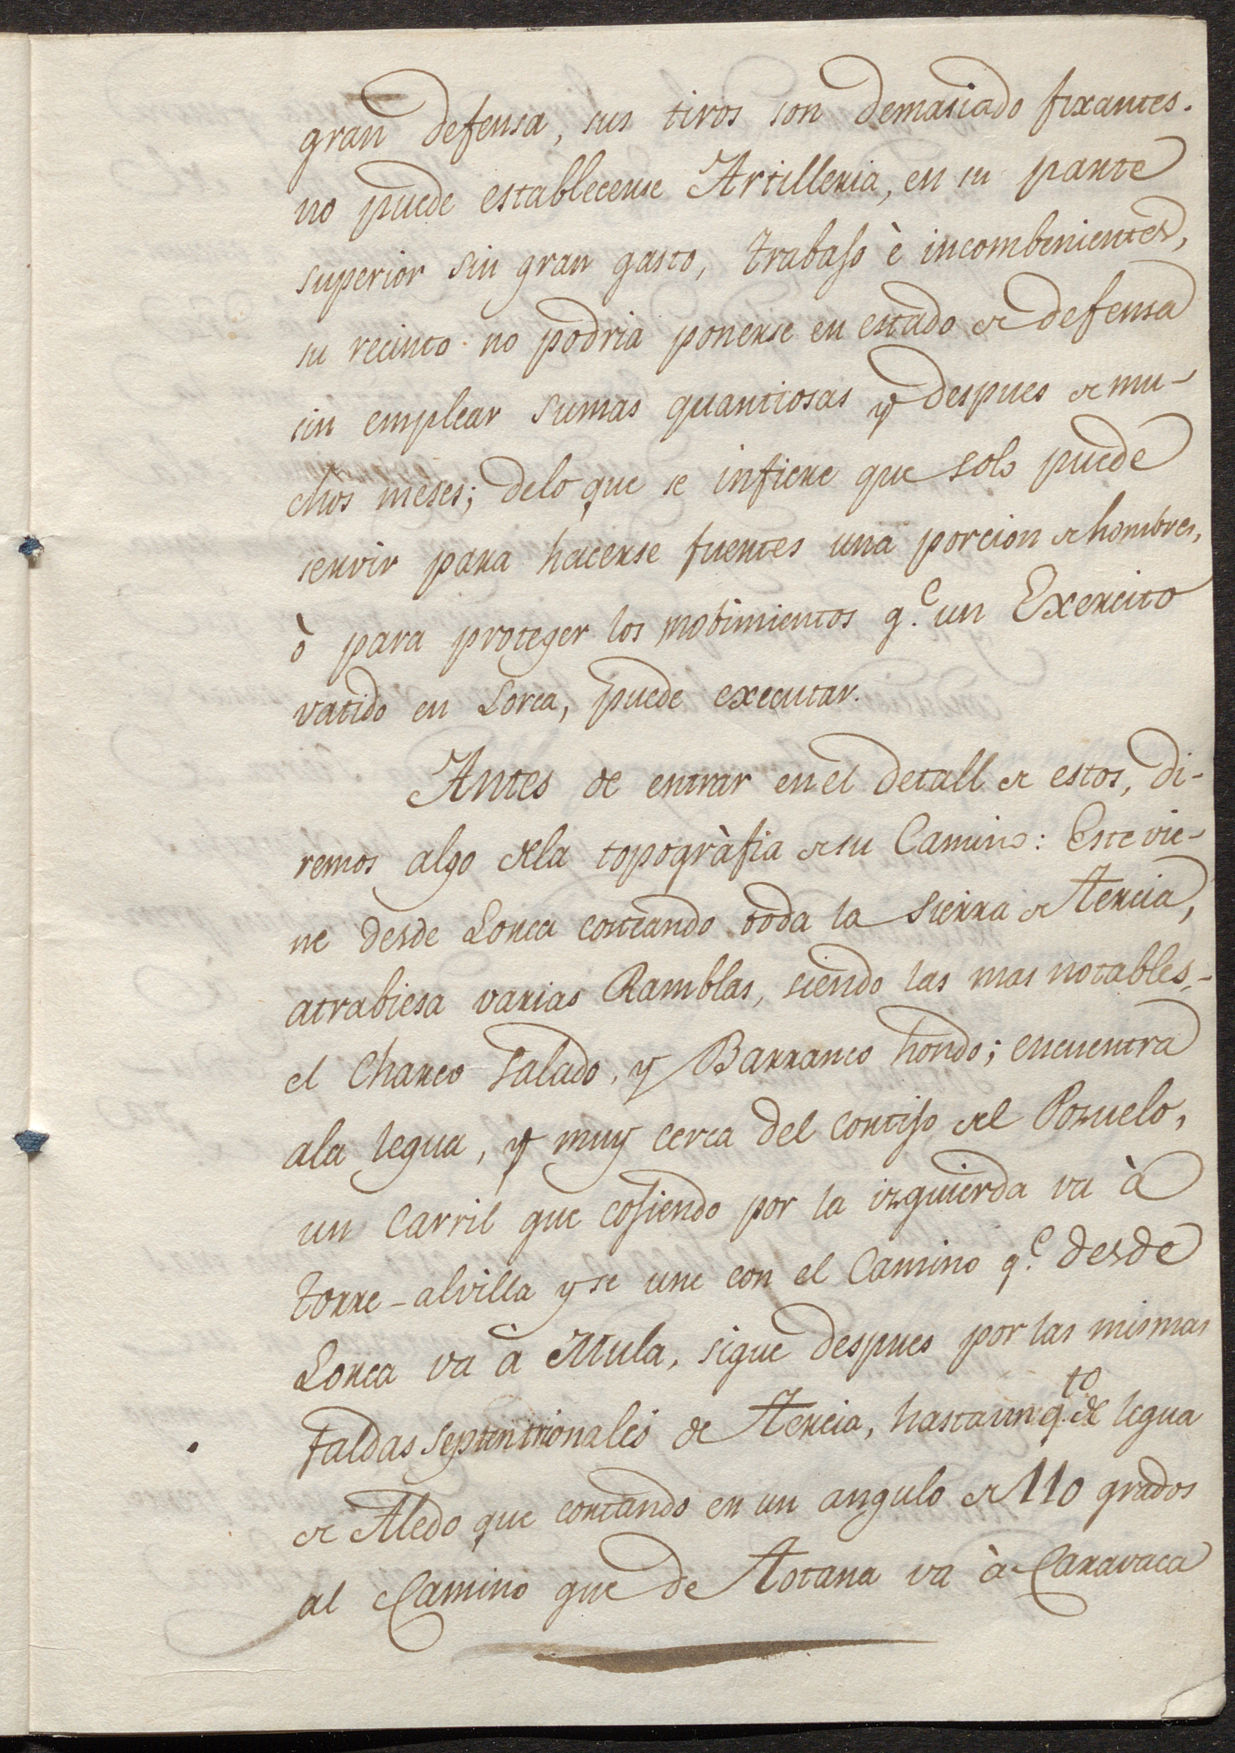 gran defensa, sus tiros son demasiado fixantes.
no puede establecerse Artilleria, en su parte
superior sin gran gasto, trabajo è incombenientes,
su recinto no podria ponerse en estado de defensa
sin emplear sumas quantiosas y despues de mu-
chos meses; delo que se infiere que solo puede
servir para hacerse fuertes una porcion de hombres,
ò para proteger los mobimientos q.e un Exercito
vatido en Lorca, puede executar.
Antes de entrar en el detall de estos, di-
remos algo dela topogràfia de su Camino: Este vie-
ne desde Lorca costeando toda la Sierra de Tercia,
atrabiesa varias Ramblas, siendo las mas notables,-
el Charco Salado, y Barranco hondo; encuentra
ala legua, y muy cerca del cortijo del Pozuelo,
un Carril que cojiendo por la izquierda va à
torre-alvilla y se une con el Camino q.e desde
Lorca va à Mula, sigue despues por las mismas
faldas septentrionales de Tercia, hasta un q.to de legua
de Aledo que cortando en un angulo de 110 grados
al Camino que de Totana va à Caravaca